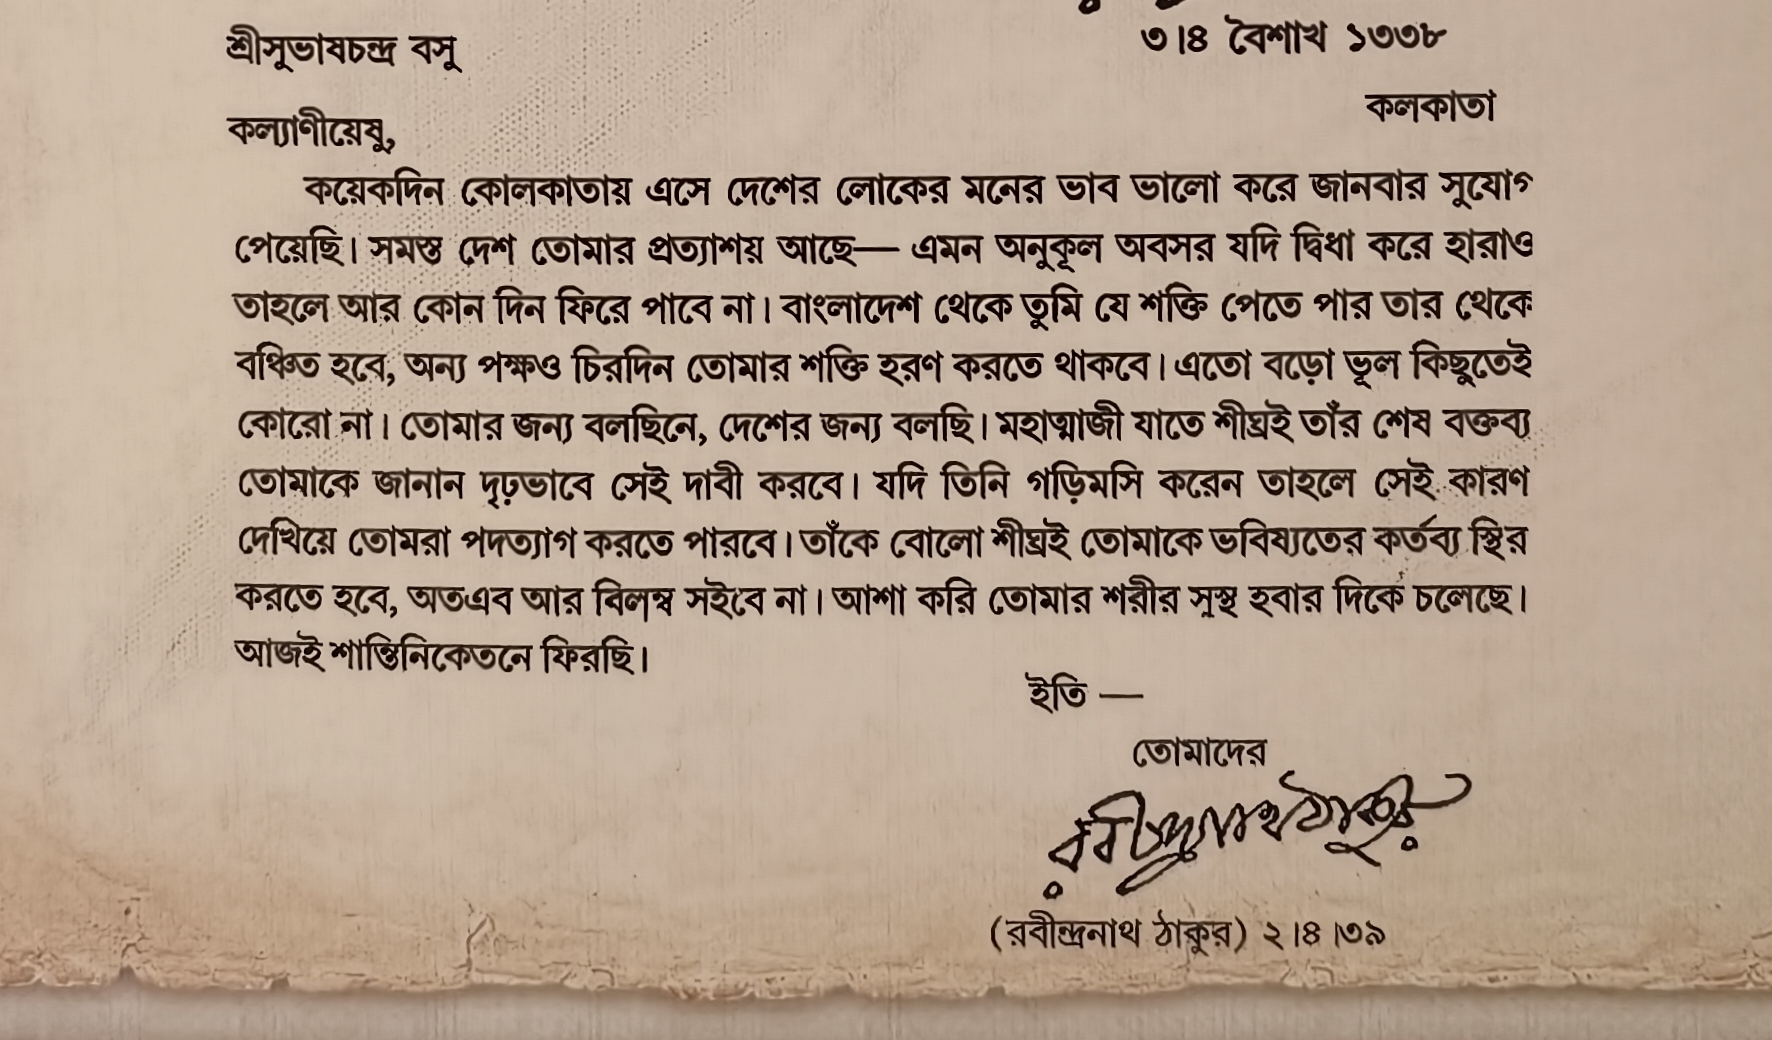 শ্রীসুভাষচন্দ্র বসু
৩।৪ বৈশাখ ১৩৩৮
কলকাতা
কল্যাণীয়েষু,
কয়েকদিন কোলকাতায় এসে দেশের লোকের মনের ভাব ভালো করে জানবার সুযোগ
পেয়েছি। সমস্ত দেশ তোমার প্রত্যাশয় আছে— এমন অনুকূল অবসর যদি দ্বিধা করে হারাও
তাহলে আর কোন দিন ফিরে পাবে না। বাংলাদেশ থেকে তুমি যে শক্তি পেতে পার তার থেকে
বঞ্চিত হবে, অন্য পক্ষও চিরদিন তোমার শক্তি হরণ করতে থাকবে। এতো বড়ো ভূল কিছুতেই
কোরো না। তোমার জন্য বলছিনে, দেশের জন্য বলছি। মহাত্মাজী যাতে শীঘ্রই তাঁর শেষ বক্তব্য
তোমাকে জানান দৃঢ়ভাবে সেই দাবী করবে। যদি তিনি গড়িমসি করেন তাহলে সেই কারণ
দেখিয়ে তোমরা পদত্যাগ করতে পারবে। তাঁকে বোলো শীঘ্রই তোমাকে ভবিষ্যতের কর্তব্য স্থির
করতে হবে, অতএব আর বিলম্ব সইবে না। আশা করি তোমার শরীর সুস্থ হবার দিকে চলেছে।
আজই শান্তিনিকেতনে ফিরছি।
ইতি —
তোমাদের
রবীন্দ্রনাথ ঠাকুর
(রবীন্দ্রনাথ ঠাকুর) ২।৪।৩৯